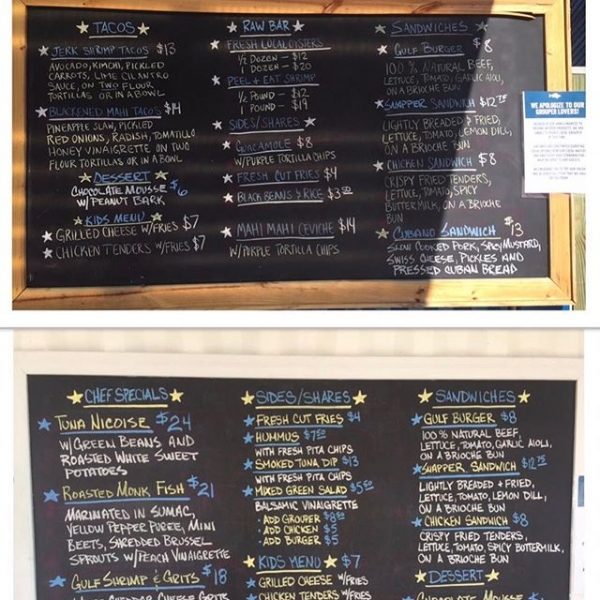 ★ TACOS ★
★ JERK SHRIMP TACOS $13
AVOCADO, KIMCHI, PICKLED
CARROTS, LIME CILANTRO
SAUCE, ON TWO FLOUR
TORTILLAS OR IN A BOWL
★ BLACKENED MAHI TACOS $14
PINEAPPLE SLAW, PICKLED
RED ONIONS, RADISH, TOMATILLO
HONEY VINAIGRETTE ON TWO
FLOUR TORTILLAS OR IN A BOWL
★ DESSERT ★
CHOCOLATE MOUSSE $6
W/ PEANUT BARK
★ KIDS MENU ★
★ GRILLED CHEESE W/FRIES $7
★ CHICKEN TENDERS W/FRIES $7
★ RAW BAR ★
★ FRESH LOCAL OYSTERS
1/2 DOZEN - $12
1 DOZEN - $20
★ PEEL + EAT SHRIMP
1/2 POUND - $12
1 POUND - $19
★ SIDES/SHARES ★
★ GUACAMOLE $8
W/PURPLE TORTILLA CHIPS
★ FRESH CUT FRIES $4
★ BLACK BEANS & RICE $3.50
★ MAHI MAHI CEVICHE $14
W/PURPLE TORTILLA CHIPS
★ SANDWICHES ★
★ GULF BURGER $8
100% NATURAL BEEF,
LETTUCE, TOMATO, GARLIC AIOLI,
ON A BRIOCHE BUN
★ SNAPPER SANDWICH $12.75
LIGHTLY BREADED & FRIED,
LETTUCE, TOMATO, LEMON DILL,
ON A BRIOCHE BUN
★ CHICKEN SANDWICH $8
CRISPY FRIED TENDERS,
LETTUCE, TOMATO, SPICY
BUTTERMILK, ON A BRIOCHE
BUN
★ CUBANO SANDWICH $13
SLOW COOKED PORK, SPICY MUSTARD,
SWISS CHEESE, PICKLES AND
PRESSED CUBAN BREAD
WE APOLOGIZE TO OUR
GROUPER LOVERS!
★ CHEF SPECIALS ★
★ TUNA NICOISE $24
W/GREEN BEANS AND
ROASTED WHITE SWEET
POTATOES
★ ROASTED MONK FISH $21
MARINATED IN SUMAC,
YELLOW PEPPER PUREE, MINI
BEETS, SHREDDED BRUSSEL
SPROUTS W/PEACH VINAIGRETTE
★ GULF SHRIMP & GRITS $18
CHEDDAR CHEESE GRITS
★ SIDES/SHARES ★
★ FRESH CUT FRIES $4
★ HUMMUS $7.50
WITH FRESH PITA CHIPS
★ SMOKED TUNA DIP $13
WITH FRESH PITA CHIPS
★ MIXED GREEN SALAD $5.50
BALSAMIC VINAIGRETTE
· ADD GROUPER
· ADD CHICKEN $5
· ADD BURGER $5
★ KIDS MENU ★ $7
★ GRILLED CHEESE W/FRIES
★ CHICKEN TENDERS W/FRIES
★ SANDWICHES ★
★ GULF BURGER $8
100% NATURAL BEEF,
LETTUCE, TOMATO, GARLIC AIOLI,
ON A BRIOCHE BUN
★ SNAPPER SANDWICH $12.75
LIGHTLY BREADED + FRIED,
LETTUCE, TOMATO, LEMON DILL,
ON A BRIOCHE BUN
★ CHICKEN SANDWICH $8
CRISPY FRIED TENDERS,
LETTUCE, TOMATO, SPICY BUTTERMILK,
ON A BRIOCHE BUN
★ DESSERT ★
CHOCOLATE MOUSSE